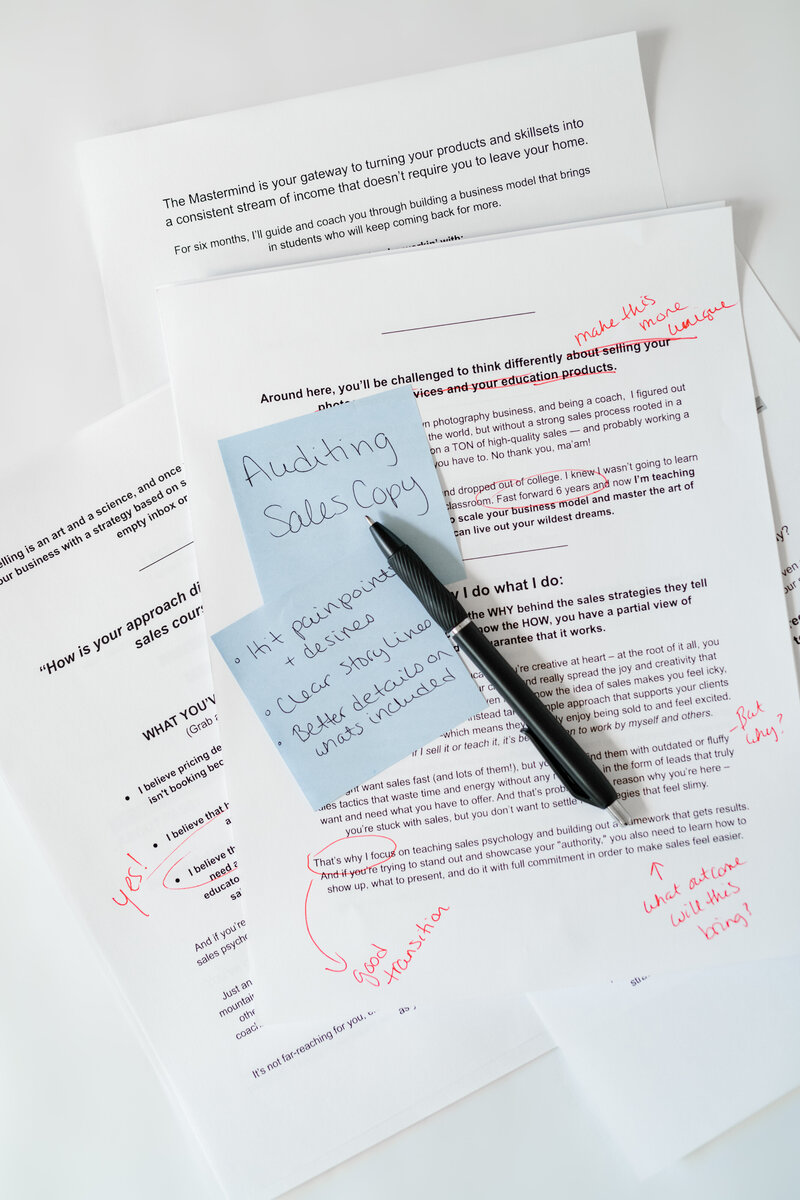 The Mastermind is your gateway to turning your products and skillsets into
a consistent stream of income that doesn't require you to leave your home.
For six months, I'll guide and coach you through building a business model that brings
in students who will keep coming back for more.
workin' with:
make this
more
unique
Around here, you'll be challenged to think differently about selling your
and your education products.
photography business, and being a coach, I figured out
the world, but without a strong sales process rooted in a
on a TON of high-quality sales — and probably working a
you have to. No thank you, ma'am!
dropped out of college. I knew I wasn't going to learn
Fast forward 6 years and now I'm teaching
to scale your business model and master the art of
can live out your wildest dreams.
Auditing
Sales Copy
• Hit painpoints
+ desires
• Clear storylines
• Better details on
whats included
I do what I do:
the WHY behind the sales strategies they tell
the HOW, you have a partial view of
guarantee that it works.
you're creative at heart – at the root of it all, you
and really spread the joy and creativity that
the idea of sales makes you feel icky,
approach that supports your clients
which means they enjoy being sold to and feel excited.
if I sell it or teach it, to work by myself and others.
- But
why?
want sales fast (and lots of them!), but them with outdated or fluffy
sales tactics that waste time and energy without any in the form of leads that truly
want and need what you have to offer. And that's reason why you're here –
you're stuck with sales, but you don't want to settle that feel slimy.
That's why I focus on teaching sales psychology and building out a framework that gets results.
And if you're trying to stand out and showcase your "authority," you also need to learn how to
show up, what to present, and do it with full commitment in order to make sales feel easier.
good
transition
what outcome
will this
bring?
selling is an art and a science, and once
your business with a strategy based on
empty inbox or
"How is your approach
sales
WHAT YOU'V
(Grab a
• I believe pricing
isn't booking
• I believe that
• I believe
need
yes!
And if you're
sales
Just an
It's not far-reaching for you,